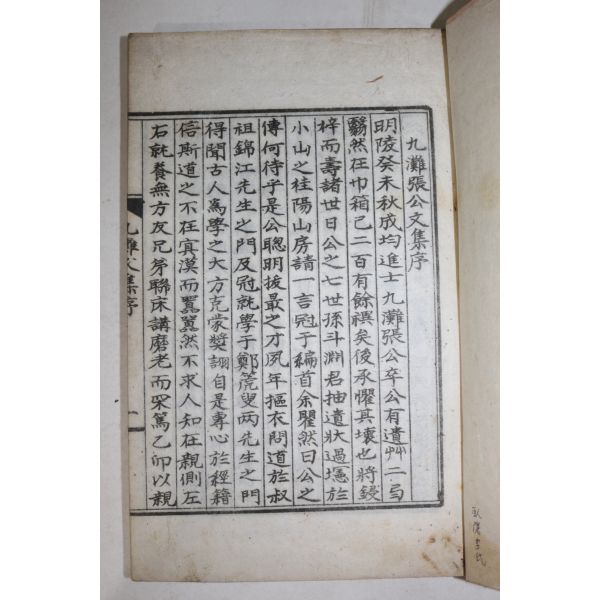 九灘張公文集序
明陵癸未秋成均進士九灘張公卒公有遺艸二局
翳然在巾箱已二百有餘禩矣後承懼其壞也將鋟
梓而壽諸世日公之七世孫斗淵君抽遺狀過壖於
小山之桂陽山房請一言冠于編首余瞿然曰公之
傳何待乎是公聰明拔最之才夙年摳衣問道於叔
祖錦江先生之門及冠就學于鄭篪叟兩先生之門
得聞古人爲學之大方克蒙奬詡自是專心於經籍
信斯道之不在寞漠而囂囂然不求人知在親側左
右就養無方友兄弟聯床講磨老而罙篤乙卯以親
九灘公集序
一